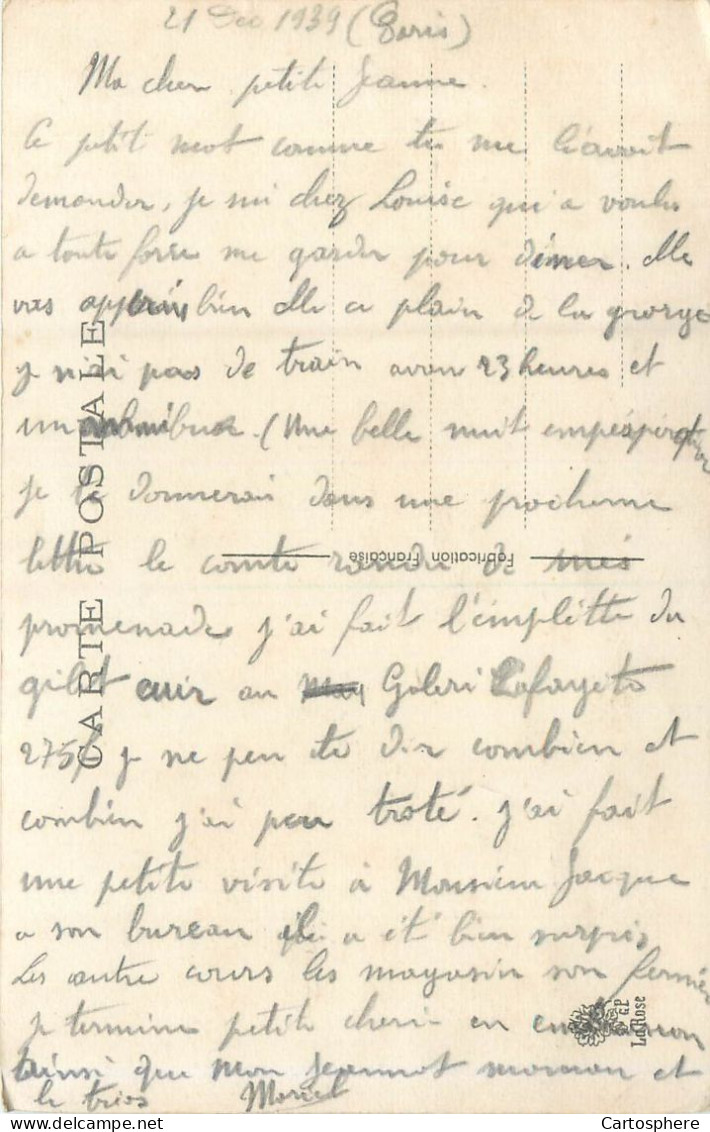 21 Dec 1939 (Paris)
Ma cher petite Jeanne.
Ce petit mot comme tu me
demander, je sui chez Louise qui a voulu
a toute forse me garder pour dîner. elle
vas bien elle ce plain de la gorge
je n'ai pas de train aven 23 heures et
un (Une belle nuit
Je te donnerai dans une prochene
lettre le comte rendu de mes
promenades j'ai fait l'emplette du
gilet cuir au Galeri Lafayete
275f je ne peu te dir combien et
combien j'ai peu troté. J'ai fait
une petite visite a Monsieur Jacque
a son bureau il a été bien surpris
Les autre cours les magasin son fermés
je termine petit cheri en
ainsi que mon Jeannot moman et
le trios Marcel
CARTE POSTALE
Fabrication Française
G.P
La Rose
Cartosphere